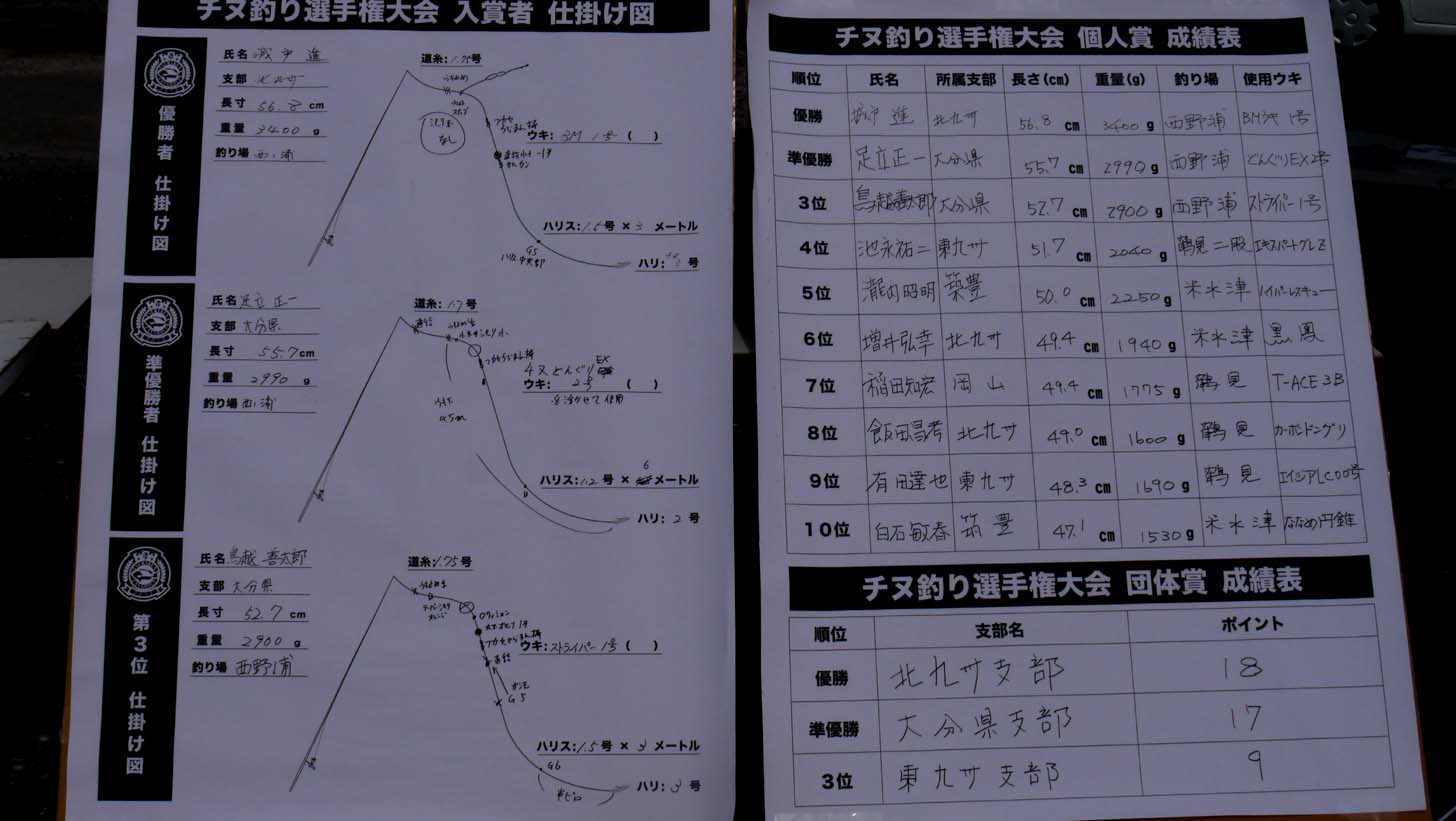 チヌ釣り選手権大会 入賞者 仕掛け図
優勝者 仕掛け図
氏名 城戸 進
支部 北九サ
長寸 56.8 cm
重量 3400 g
釣り場 西ノ浦
道糸:1.75号
うき止め
なし
ウキ: BM 1号 ( )
ハリス:1.5号 × 3 メートル
G5
ハリス中央部
ハリ: 号
準優勝者 仕掛け図
氏名 足立正一
支部 大分県
長寸 55.7cm
重量 2990 g
釣り場 西ノ浦
道糸:1.7号
チヌどんぐりEX
ウキ: 2号 ( )
ハリス:1.2号 × 6 メートル
ハリ: 2 号
第3位 仕掛け図
氏名 鳥越善太郎
支部 大分県
長寸 52.7 cm
重量 2900 g
釣り場 西野浦
道糸:1.75号
ウキ:ストライパー1号 ( )
G5
ハリス:1.5号 × 3 メートル
G6
ハリ: 3 号
チヌ釣り選手権大会 個人賞 成績表
順位 氏名 所属支部 長さ(cm) 重量(g) 釣り場 使用ウキ
優勝 城戸 進 北九サ 56.8 cm 3400 g 西野浦 1号
準優勝 足立正一 大分県 55.7 cm 2990 g 西野浦 どんぐりEX2号
3位 鳥越善太郎 大分県 52.7 cm 2900 g 西野浦 ストライパー1号
4位 池永祐二 東九サ 51.7 cm 2040 g 鶴見二股 エキスパートグレZ
5位 瀧内昭明 築豊 50.0 cm 2250 g 米水津 ハイパーレスキュー
6位 増井弘幸 北九サ 49.4 cm 1940 g 米水津 黒鳳
7位 稲田知宏 岡山 49.4 cm 1775 g 鶴見 T-ACE3B
8位 飯田昌孝 北九サ 49.0 cm 1600 g 鶴見 カーボンドングリ
9位 有田達也 東九サ 48.3 cm 1690 g 鶴見 エイジアLC00号
10位 白石敏春 筑豊 47.1 cm 1530 g 米水津 ななめ円錐
チヌ釣り選手権大会 団体賞 成績表
順位 支部名 ポイント
優勝 北九サ支部 18
準優勝 大分県支部 17
3位 東九サ支部 9